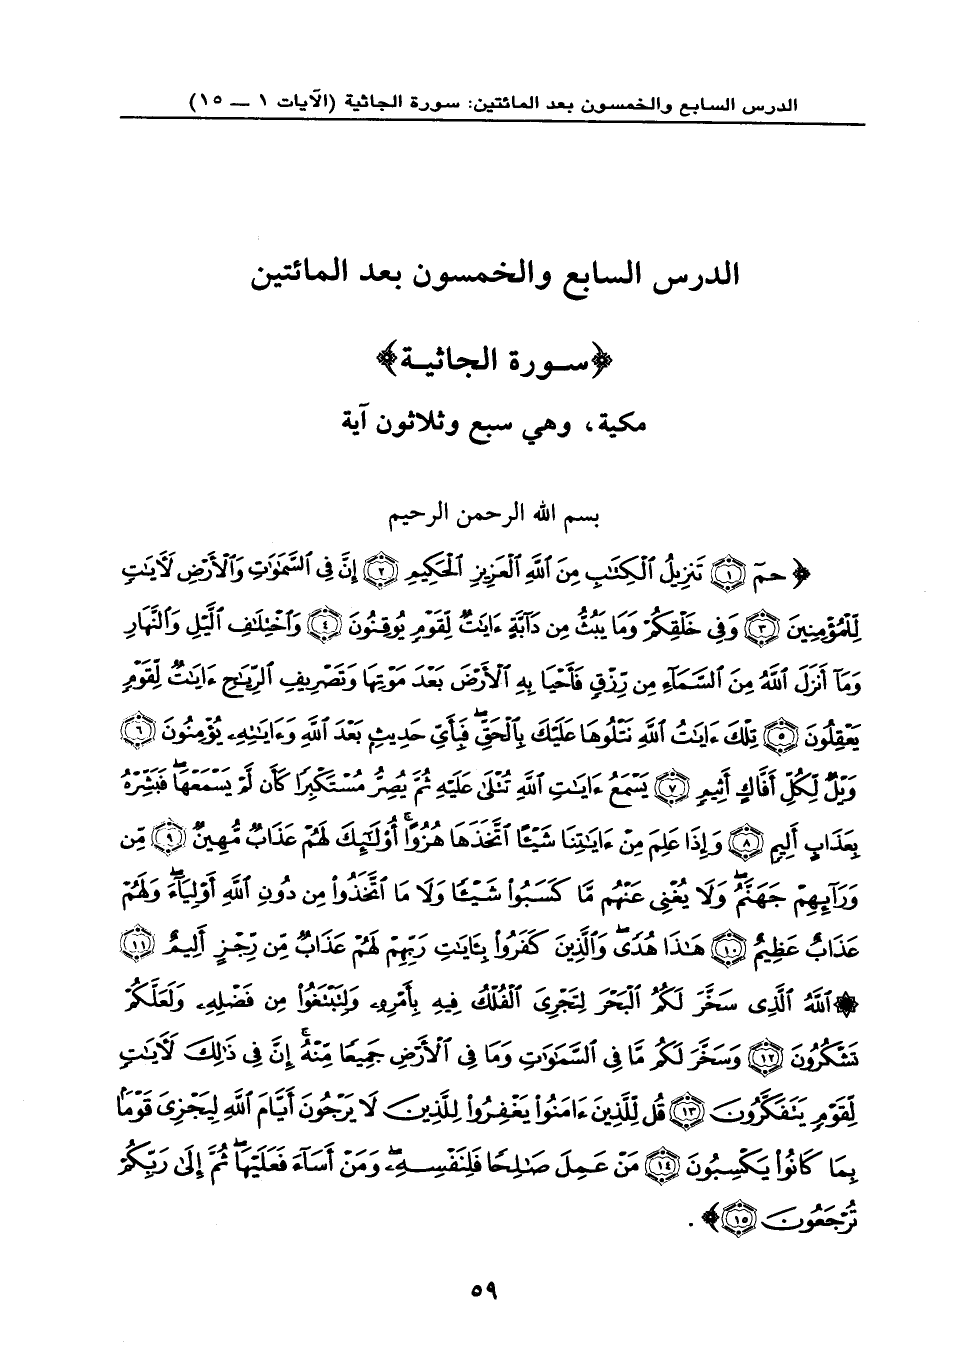 الدرس السابع والخمسون بعد المائتين: سورة الجاثية (الآيات ١ ــ ١٥)
الدرس السابع والخمسون بعد المائتين
﴿سورة الجاثية﴾
مكية، وهي سبع وثلاثون آية
بسم الله الرحمن الرحيم
﴿ حمٓ ١ تَنزِيلُ ٱلْكِتَٰبِ مِنَ ٱللَّهِ ٱلْعَزِيزِ ٱلْحَكِيمِ ٢ إِنَّ فِى ٱلسَّمَٰوَٰتِ وَٱلْأَرْضِ لَءَايَٰتٍ
لِّلْمُؤْمِنِينَ ٣ وَفِى خَلْقِكُمْ وَمَا يَبُثُّ مِن دَآبَّةٍ ءَايَٰتٌ لِّقَوْمٍ يُوقِنُونَ ٤ وَٱخْتِلَٰفِ ٱلَّيْلِ وَٱلنَّهَارِ
وَمَآ أَنزَلَ ٱللَّهُ مِنَ ٱلسَّمَآءِ مِن رِّزْقٍ فَأَحْيَا بِهِ ٱلْأَرْضَ بَعْدَ مَوْتِهَا وَتَصْرِيفِ ٱلرِّيَٰحِ ءَايَٰتٌ لِّقَوْمٍ
يَعْقِلُونَ ٥ تِلْكَ ءَايَٰتُ ٱللَّهِ نَتْلُوهَا عَلَيْكَ بِٱلْحَقِّ ۖ فَبِأَىِّ حَدِيثٍۭ بَعْدَ ٱللَّهِ وَءَايَٰتِهِۦ يُؤْمِنُونَ ٦
وَيْلٌ لِّكُلِّ أَفَّاكٍ أَثِيمٍ ٧ يَسْمَعُ ءَايَٰتِ ٱللَّهِ تُتْلَىٰ عَلَيْهِ ثُمَّ يُصِرُّ مُسْتَكْبِرًا كَأَن لَّمْ يَسْمَعْهَا ۖ فَبَشِّرْهُ
بِعَذَابٍ أَلِيمٍ ٨ وَإِذَا عَلِمَ مِنْ ءَايَٰتِنَا شَيْـًٔا ٱتَّخَذَهَا هُزُوًا ۚ أُو۟لَٰٓئِكَ لَهُمْ عَذَابٌ مُّهِينٌ ٩ مِّن
وَرَآئِهِمْ جَهَنَّمُ ۖ وَلَا يُغْنِى عَنْهُم مَّا كَسَبُوا۟ شَيْـًٔا وَلَا مَا ٱتَّخَذُوا۟ مِن دُونِ ٱللَّهِ أَوْلِيَآءَ ۖ وَلَهُمْ
عَذَابٌ عَظِيمٌ ١٠ هَٰذَا هُدًى ۖ وَٱلَّذِينَ كَفَرُوا۟ بِـَٔايَٰتِ رَبِّهِمْ لَهُمْ عَذَابٌ مِّن رِّجْزٍ أَلِيمٌ ١١
۞ ٱللَّهُ ٱلَّذِى سَخَّرَ لَكُمُ ٱلْبَحْرَ لِتَجْرِىَ ٱلْفُلْكُ فِيهِ بِأَمْرِهِۦ وَلِتَبْتَغُوا۟ مِن فَضْلِهِۦ وَلَعَلَّكُمْ
تَشْكُرُونَ ١٢ وَسَخَّرَ لَكُم مَّا فِى ٱلسَّمَٰوَٰتِ وَمَا فِى ٱلْأَرْضِ جَمِيعًا مِّنْهُ ۚ إِنَّ فِى ذَٰلِكَ لَءَايَٰتٍ
لِّقَوْمٍ يَتَفَكَّرُونَ ١٣ قُل لِّلَّذِينَ ءَامَنُوا۟ يَغْفِرُوا۟ لِلَّذِينَ لَا يَرْجُونَ أَيَّامَ ٱللَّهِ لِيَجْزِىَ قَوْمًۢا
بِمَا كَانُوا۟ يَكْسِبُونَ ١٤ مَنْ عَمِلَ صَٰلِحًا فَلِنَفْسِهِۦ ۖ وَمَنْ أَسَآءَ فَعَلَيْهَا ۖ ثُمَّ إِلَىٰ رَبِّكُمْ
تُرْجَعُونَ ١٥ ﴾ .
٥٩